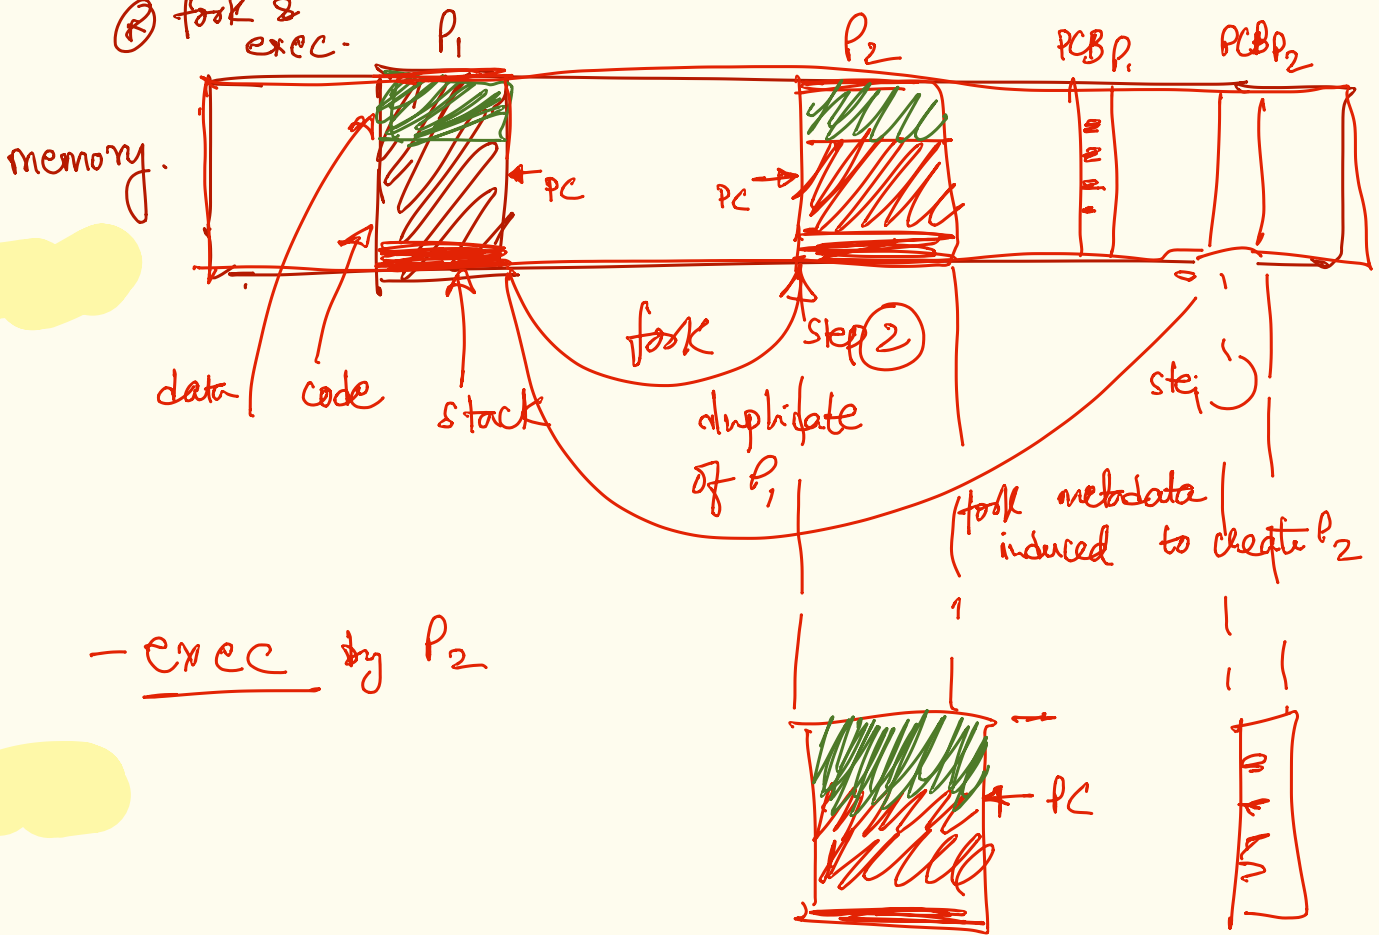 Ⓡ fork &
exec.
P1
P2
PCB P1
PCB P2
memory.
PC
PC
fork
step ②
data
code
stack
duplicate
of P1
fork metadata
induced to create P2
- exec by P2
PC